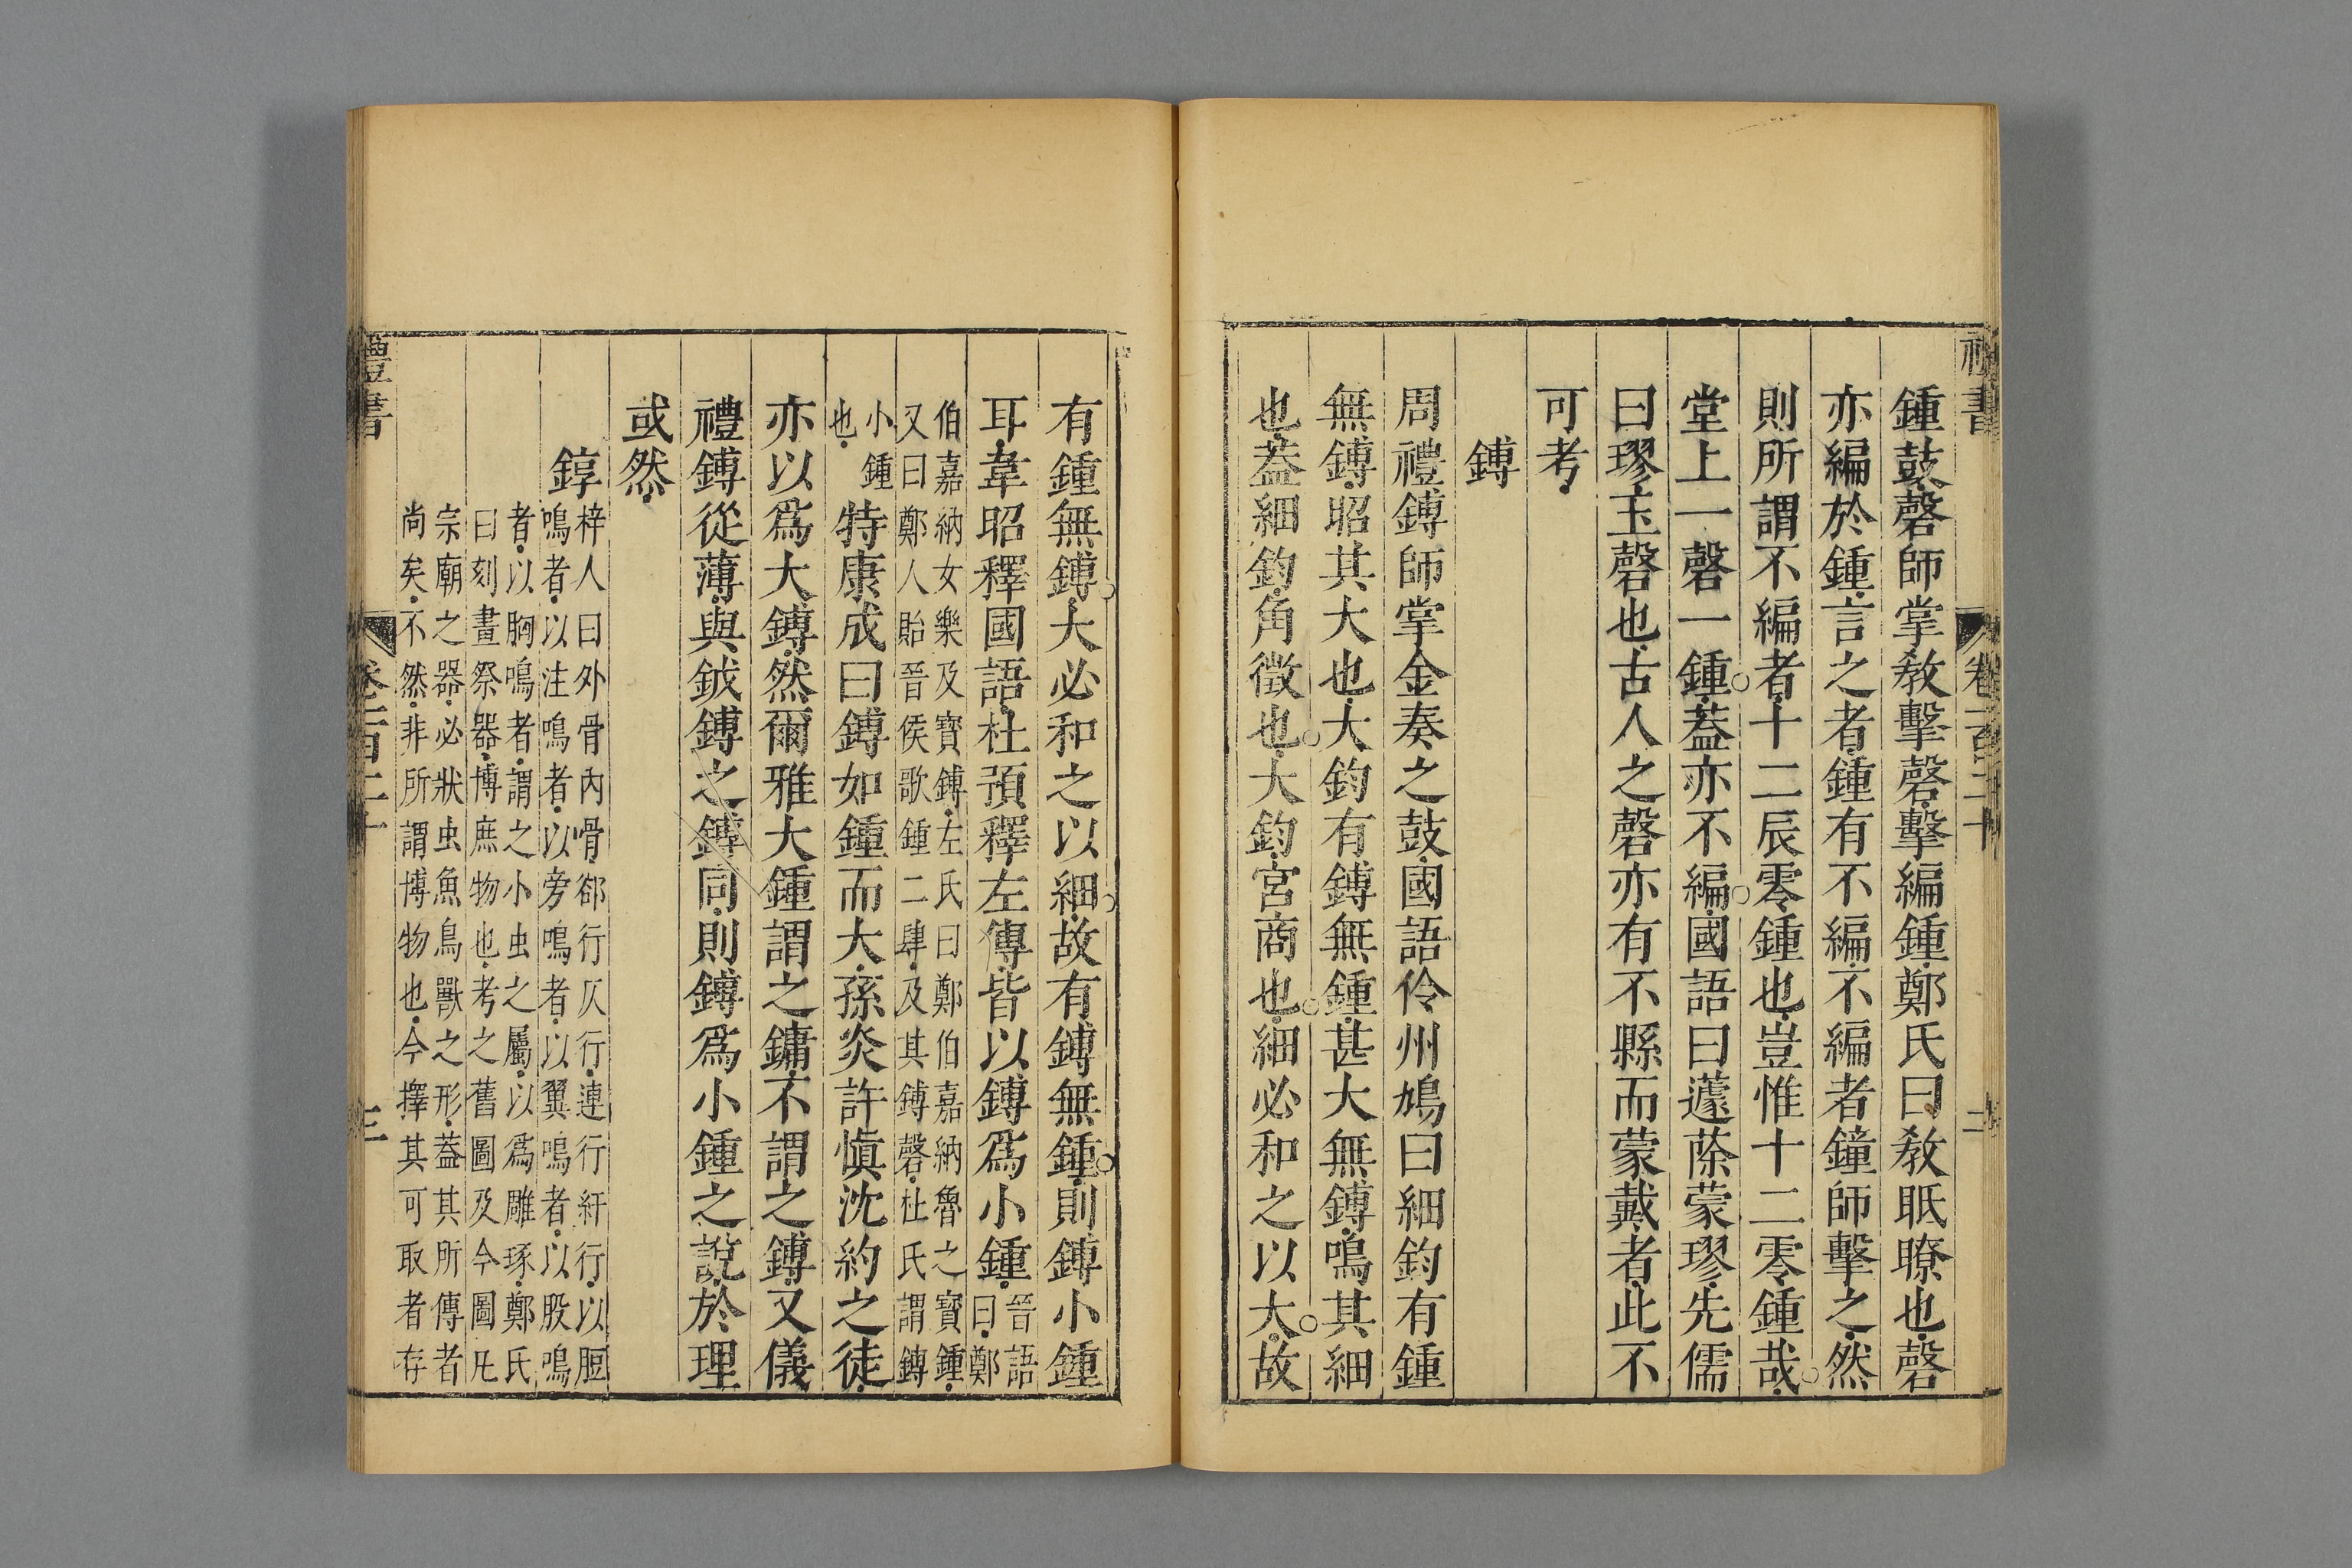 鍾鼓磬師掌教擊磬擊編鍾鄭氏曰教眡瞭也磬
亦編於鍾言之者鍾有不編不編者鐘師擊之然
則所謂不編者十二辰零鍾也豈惟十二零鍾哉
堂上一磬一鍾蓋亦不編國語曰蘧蒢蒙璆先儒
曰璆玉磬也古人之磬亦有不縣而蒙戴者此不
可考
鎛
周禮鎛師掌金奏之鼓國語伶州鳩曰細鈞有鍾
無鎛昭其大也大鈞有鎛無鍾甚大無鎛鳴其細
也蓋細鈞角徵也大鈞宮商也細必和之以大故
有鍾無鎛大必和之以細故有鎛無鍾則鎛小鍾
耳韋昭釋國語杜預釋左傳皆以鎛爲小鍾晉語
曰鄭
伯嘉納女樂及寶鎛左氏曰鄭伯嘉納魯之寶鍾
又曰鄭人貽晉侯歌鍾二肆及其鎛磬杜氏謂鎛
小鍾
也特康成曰鎛如鍾而大孫炎許慎沈約之徒
亦以爲大鎛然爾雅大鍾謂之鏞不謂之鎛又儀
禮鎛從薄與鈸鎛之鎛同則鎛爲小鍾之說於理
或然
錞
梓人曰外骨內骨郤行仄行連行紆行以脰
鳴者以注鳴者以旁鳴者以翼鳴者以股鳴
者以胸鳴者謂之小虫之屬以爲雕琢鄭氏
曰刻畫祭器博庶物也考之舊圖及今圖凡
宗廟之器必狀虫魚鳥獸之形蓋其所傳者
尚矣不然非所謂博物也今擇其可取者存
禮書
卷一百二十
二
禮書
卷一百二十
三